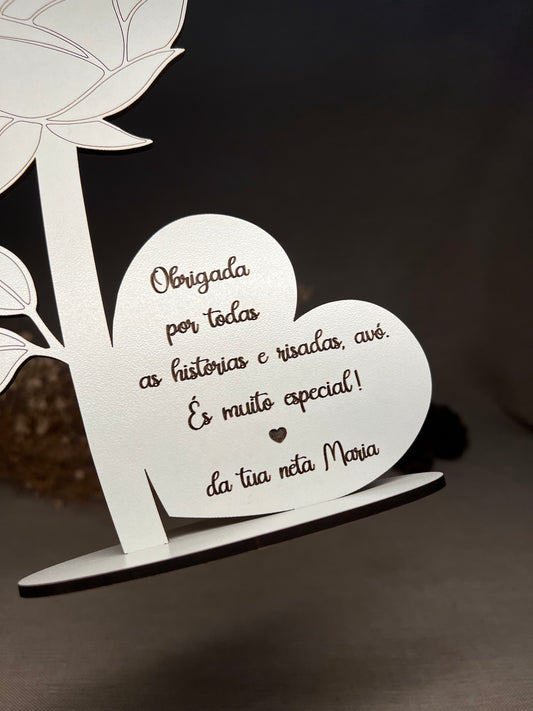 Obrigada
por todas
as histórias e risadas, avó.
És muito especial!
da tua neta Maria